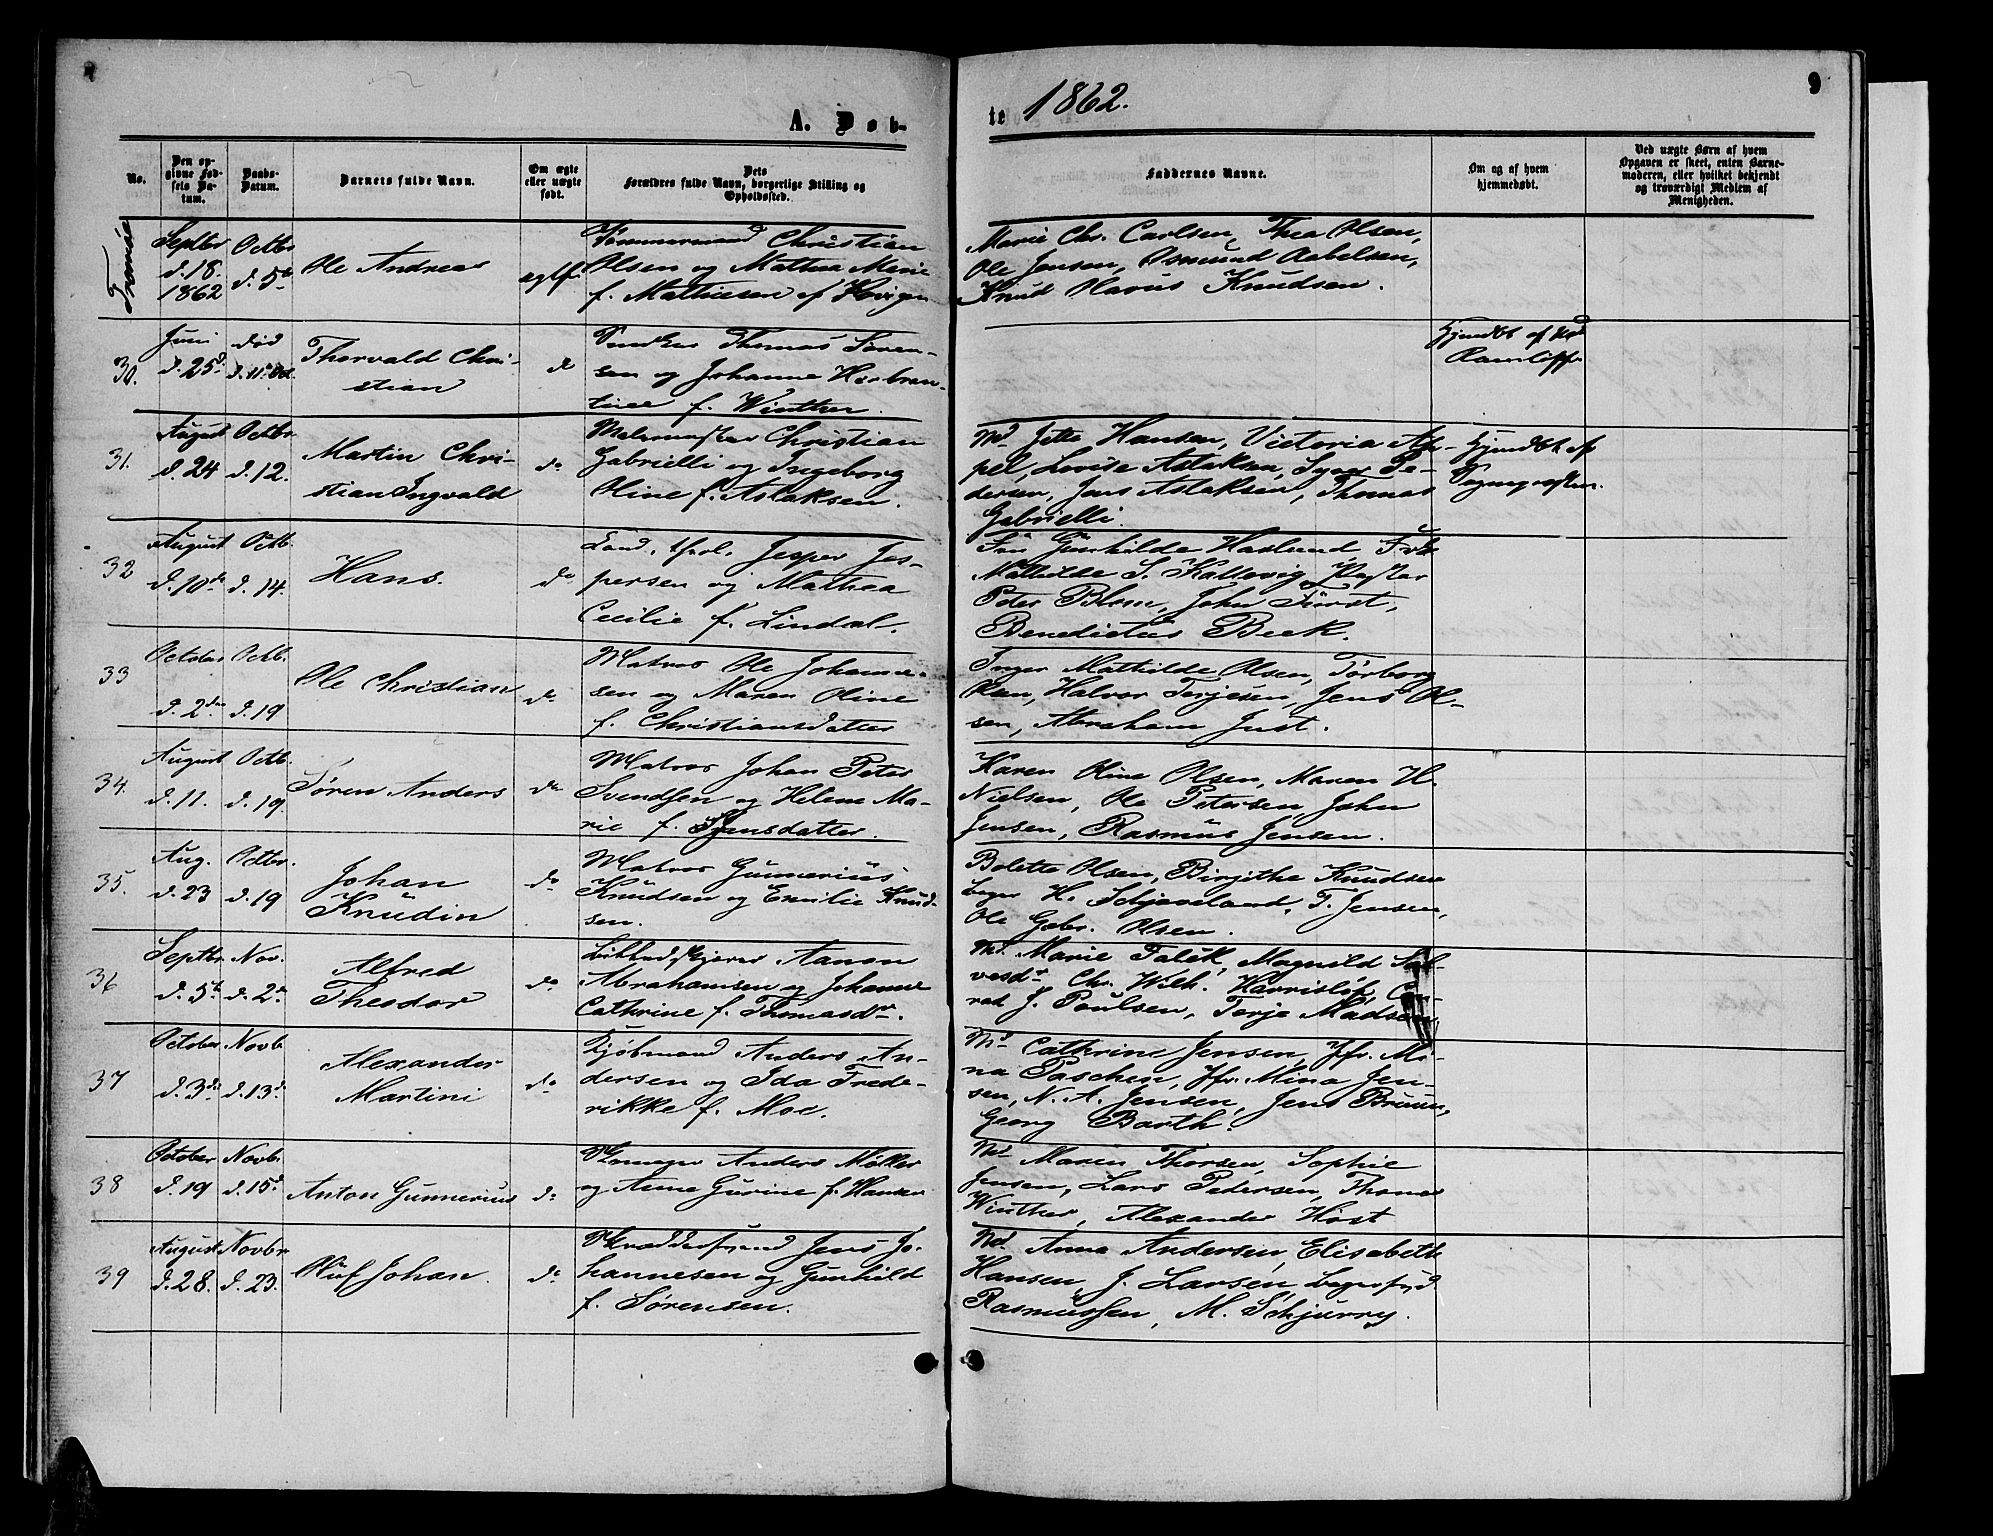 9
A. Døb-
te 1862.
No.
Den op-
givne Fød-
sels Da-
tum.
Daabs-
Datum.
Barnets fulde Navn.
Om ægte
eller uægte
født.
Dets
Forældres fulde Navn, borgerlige Stilling og
Opholdssted.
Faddernes Navne.
Om og af hvem
hjemmedøbt.
Ved uægte Børn af hvem
Opgaven er skeet, enten Barne-
moderen, eller hvilket bekjendt
og troværdigt Medlem af
Menigheden.
Tromøe
Septbr
d. 18.
1862
Octbr
d. 5te
Ole Andreas
ægtf.
Tømmermand Christian
Olsen og Mathea Marie
f. Mathiesen af Hovigen
Marie Chr. Carlsen, Thea Olsen,
Ole Jensen, Osmund Aabelsen,
Knud Olavus Knudsen.
30.
Juni
d. 25d
død
d. 11te Oct.
Thorvald Chri-
stian
do
Thomas Søren-
sen og Johanne Herbran-
tine f. Winther.
Hjemdbt af
31.
August
d. 24
Octbr.
d. 12.
Martin Chri-
stian Ingvald
do
Malermester Christian
Gabrielli og Ingeborg
Oline f. Aslaksen.
Md. Jette Hansen, Victoria Ap-
pel, Lovise Aslaksen, Syver Pe-
dersen, Jens Aslaksen, Thomas
Gabrielli.
Hjemdbt af
Sognepresten.
32
August
d. 10de
Octb.
d. 14.
Hans.
do
Jesper Jes-
persen og Mathea
Cecilie f. Lindal.
Fru Gunhilde Haslund, Frk
Mathilde S. Kallevig, Pastor
Peter Blom, John Fürst,
Benedictus Beck.
33
October
d. 2den
Octb.
d. 19
Ole Christian
do
Matros Ole Johanne-
sen og Maren Oline
f. Christiansdatter
Inger Mathilde Olsen, Tørborg
Olsen, Halvor Terjesen, Jens Ol-
sen, Abraham Just.
34.
August
d. 11.
Octb.
d. 19.
Søren Anders
do
Matros Johan Peter
Svendsen og Helene Ma-
rie f. Jensdatter.
Karen Oline Olsen, Maren H.
Nielsen, Ole Petersen, John
Jensen, Rasmus Jensen.
35.
Aug.
d. 23
Octbr.
d. 19
Johan
Knudin
do
Matros Gunnerius
Knudsen og Emilie Knud-
sen.
Bolette Olsen, Birgithe Knudsen
H. Schjeveland, T. Jensen,
Ole Gabr. Olsen.
36
Septbr.
d. 5te
Nov.
d. 2den
Alfred
Theodor
do
Aanon
Abrahamsen og Johanne
Cathrine f. Thomasdtr.
Md. Marie Falck, Magnild Sal-
vesdtr. Chr. Wilh. Harrisløf, Con-
rad J. Poulsen, Terje Madsen
37
October
d. 3die
Novb.
d. 13de
Alexander
Martini
do
Kjøbmand Anders An-
dersen og Ida Frede-
rikke f. Moe.
Md. Cathrine Jensen, Jfr. Mi-
na Paschen, Jfr. Mina Jen-
sen, N. A. Jensen, Jens Bruun,
Georg Barth.
38
October
d. 19
Novb.
d. 15de
Anton Gunnerius
do
Anders Møller
og Anne Gurine f. Hansen
Md. Maren Thorsen, Sophie
Jensen, Lars Pedersen, Thomas
Winther, Alexander Høst
39
August
d. 28.
Novbr
d. 23.
Oluf Johan.
do
Skræddersvend Jens Jo-
hannesen og Gunhild
f. Sørensen.
Md. Anna Andersen, Elisabeth
Hansen, J. Larsen,
Rasmussen, M. Schjurry.